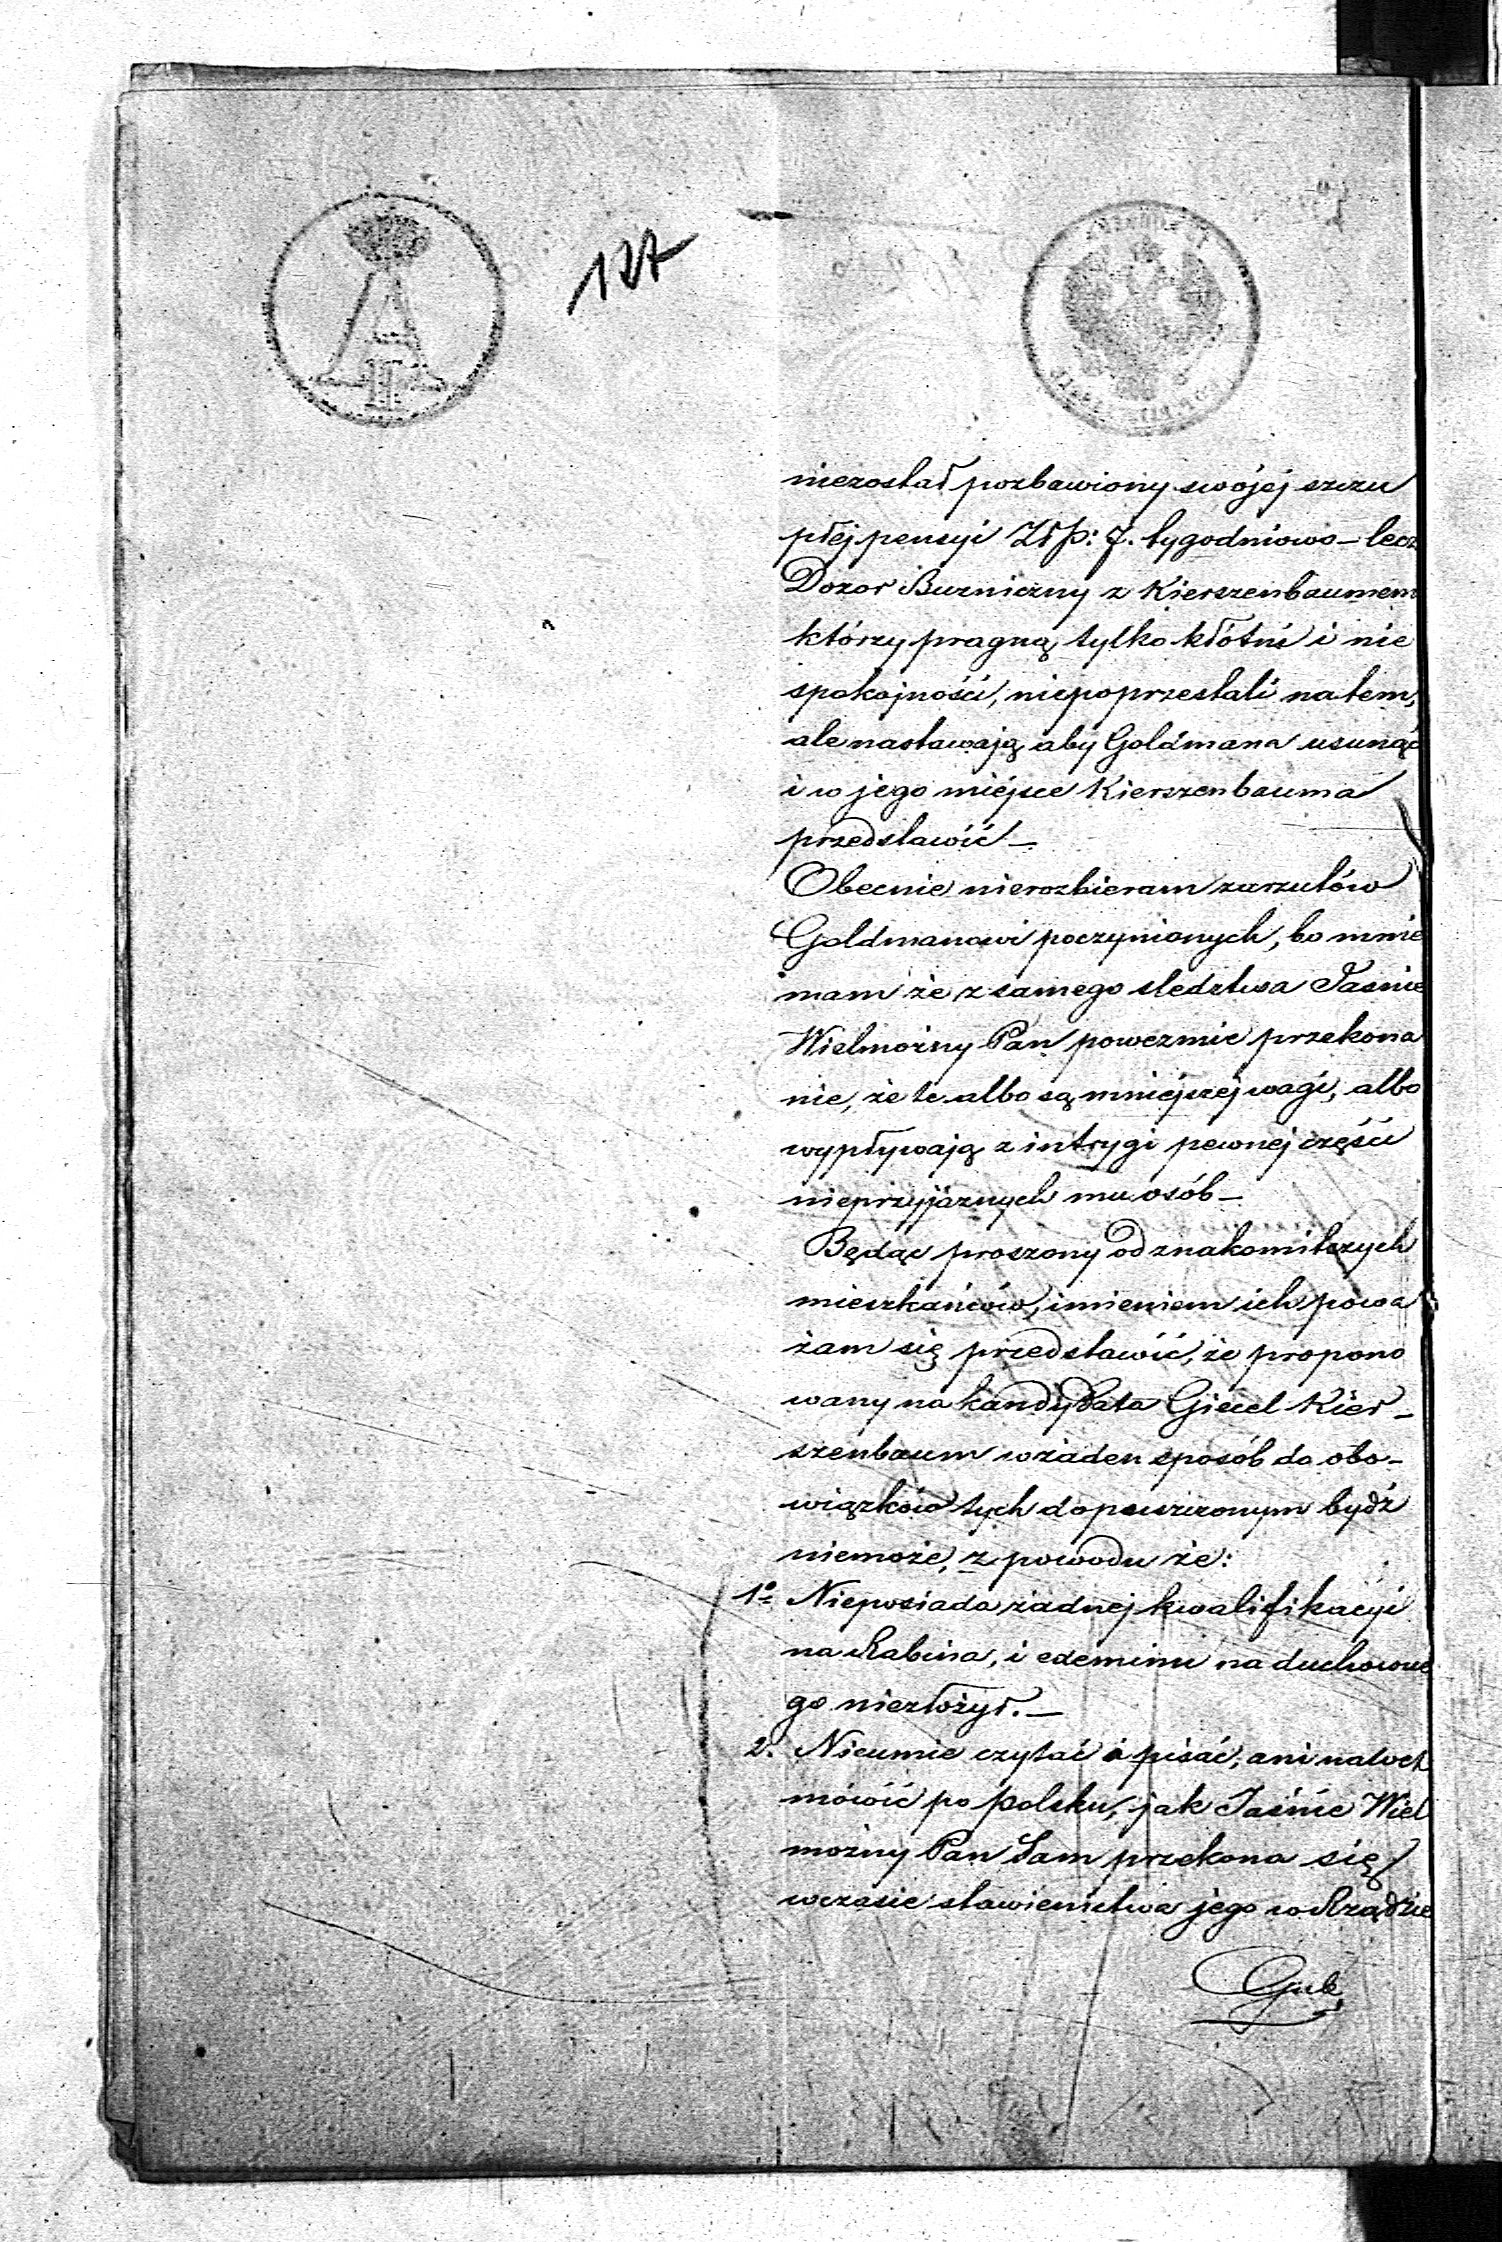 127
A
II
niezostał pozbawiony swójej szczu
płej pensyi Złp: 7. tygodniowo – lecz
Dozór Buzniczny z Kierszenbaumem
którzy pragną tylko kłótni i nie
spokojności, niepoprzestali natem,
ale nastawają aby Goldmana usunąć
i w jego miéjsce Kierszenbauma
przedstawić –
Obecnie nierozbieram zarzutów
Goldmanowi poczynionych, bo mnie
mam że z samego sledztwa Jasnie
Wielmożny Pan powezmie przekona
nie, że te albo są mniéjszéj wagi, albo
wypływają z intrygi pewnéj części
nieprzyjaznych mu osób –
Będąc proszony od znakomitszych
mieszkańców, imieniem ich powa
żam się przedstawić, że propono
wany na kandydata Giecel Kier –
szenbaum wżaden sposób do obo –
wiązków tych dopuszczonym bydź
niemoże, z powodu że:
1o Nieposiada żadnej kwalifikacyi
na Rabina, i exeminu na duchowne
go niezłożył. –
2. Nieumie czytać i pisać, ani nawet
mówić po polsku, jak Jaśnie Wiel
możny Pan Sam przekona się
wczasie stawienictwa jego w Rządzie
Gub